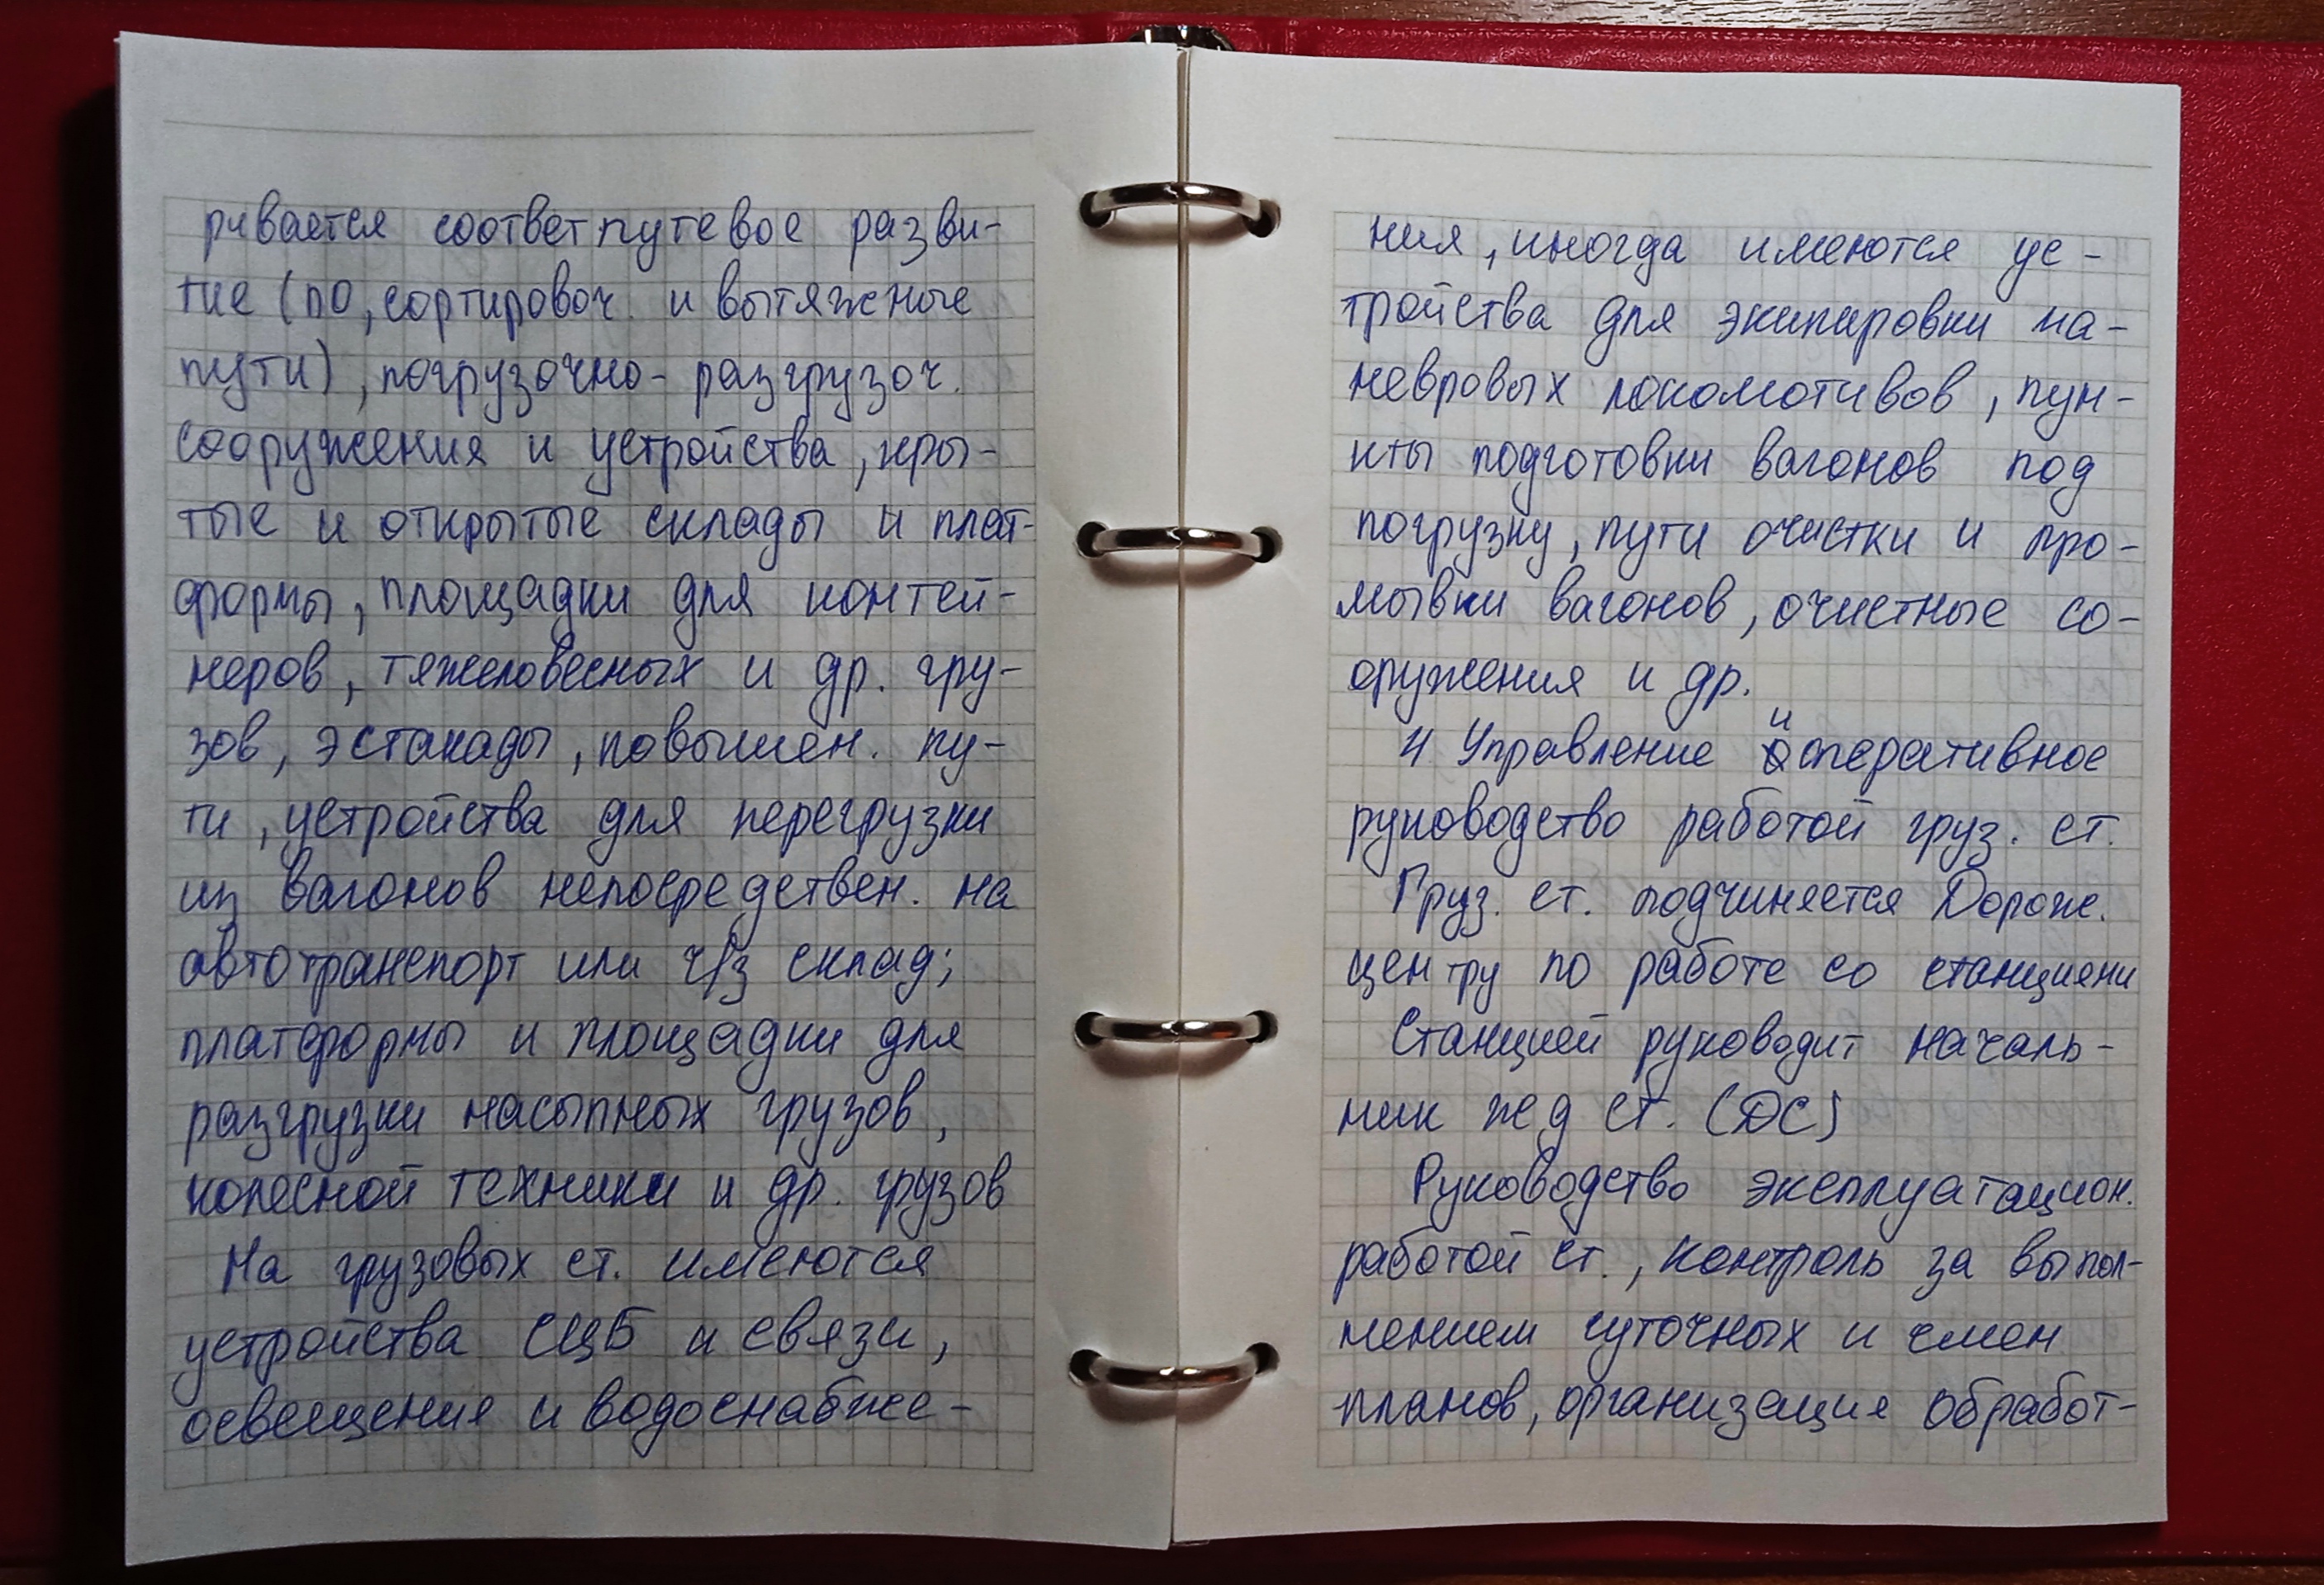 ривается соответ путевое разви-
тие (ПО, сортировоч. и вытяжные
пути), погрузочно-разгрузоч.
сооружения и устройства, кры-
тые и открытые склады и плат-
формы, площадки для контей-
неров, тяжеловесных и др. гру-
зов, эстакады, повышен. пу-
ти, устройства для перегрузки
из вагонов непосредствен. на
автотранспорт или ч/з склад;
платформы и площадки для
разгрузки насыпных грузов,
колесной техники и др. грузов
На грузовых ст. имеются
устройства СЦБ и связи,
освещения и водоснабже-
ния, иногда имеются ус-
тройства для экипировки ма-
невровых локомотивов, пун-
кты подготовки вагонов под
погрузку, пути очистки и про-
мывки вагонов, очистные со-
оружения и др.
4 Управление и оперативное
руководство работой груз. ст.
Груз. ст. подчиняется Дорож.
центру по работе со станциями
Станцией руководит началь-
ник жд ст. (ДС)
Руководство эксплуатацион.
работой ст., контроль за выпол-
нением суточных и смен
планов, организация обработ-